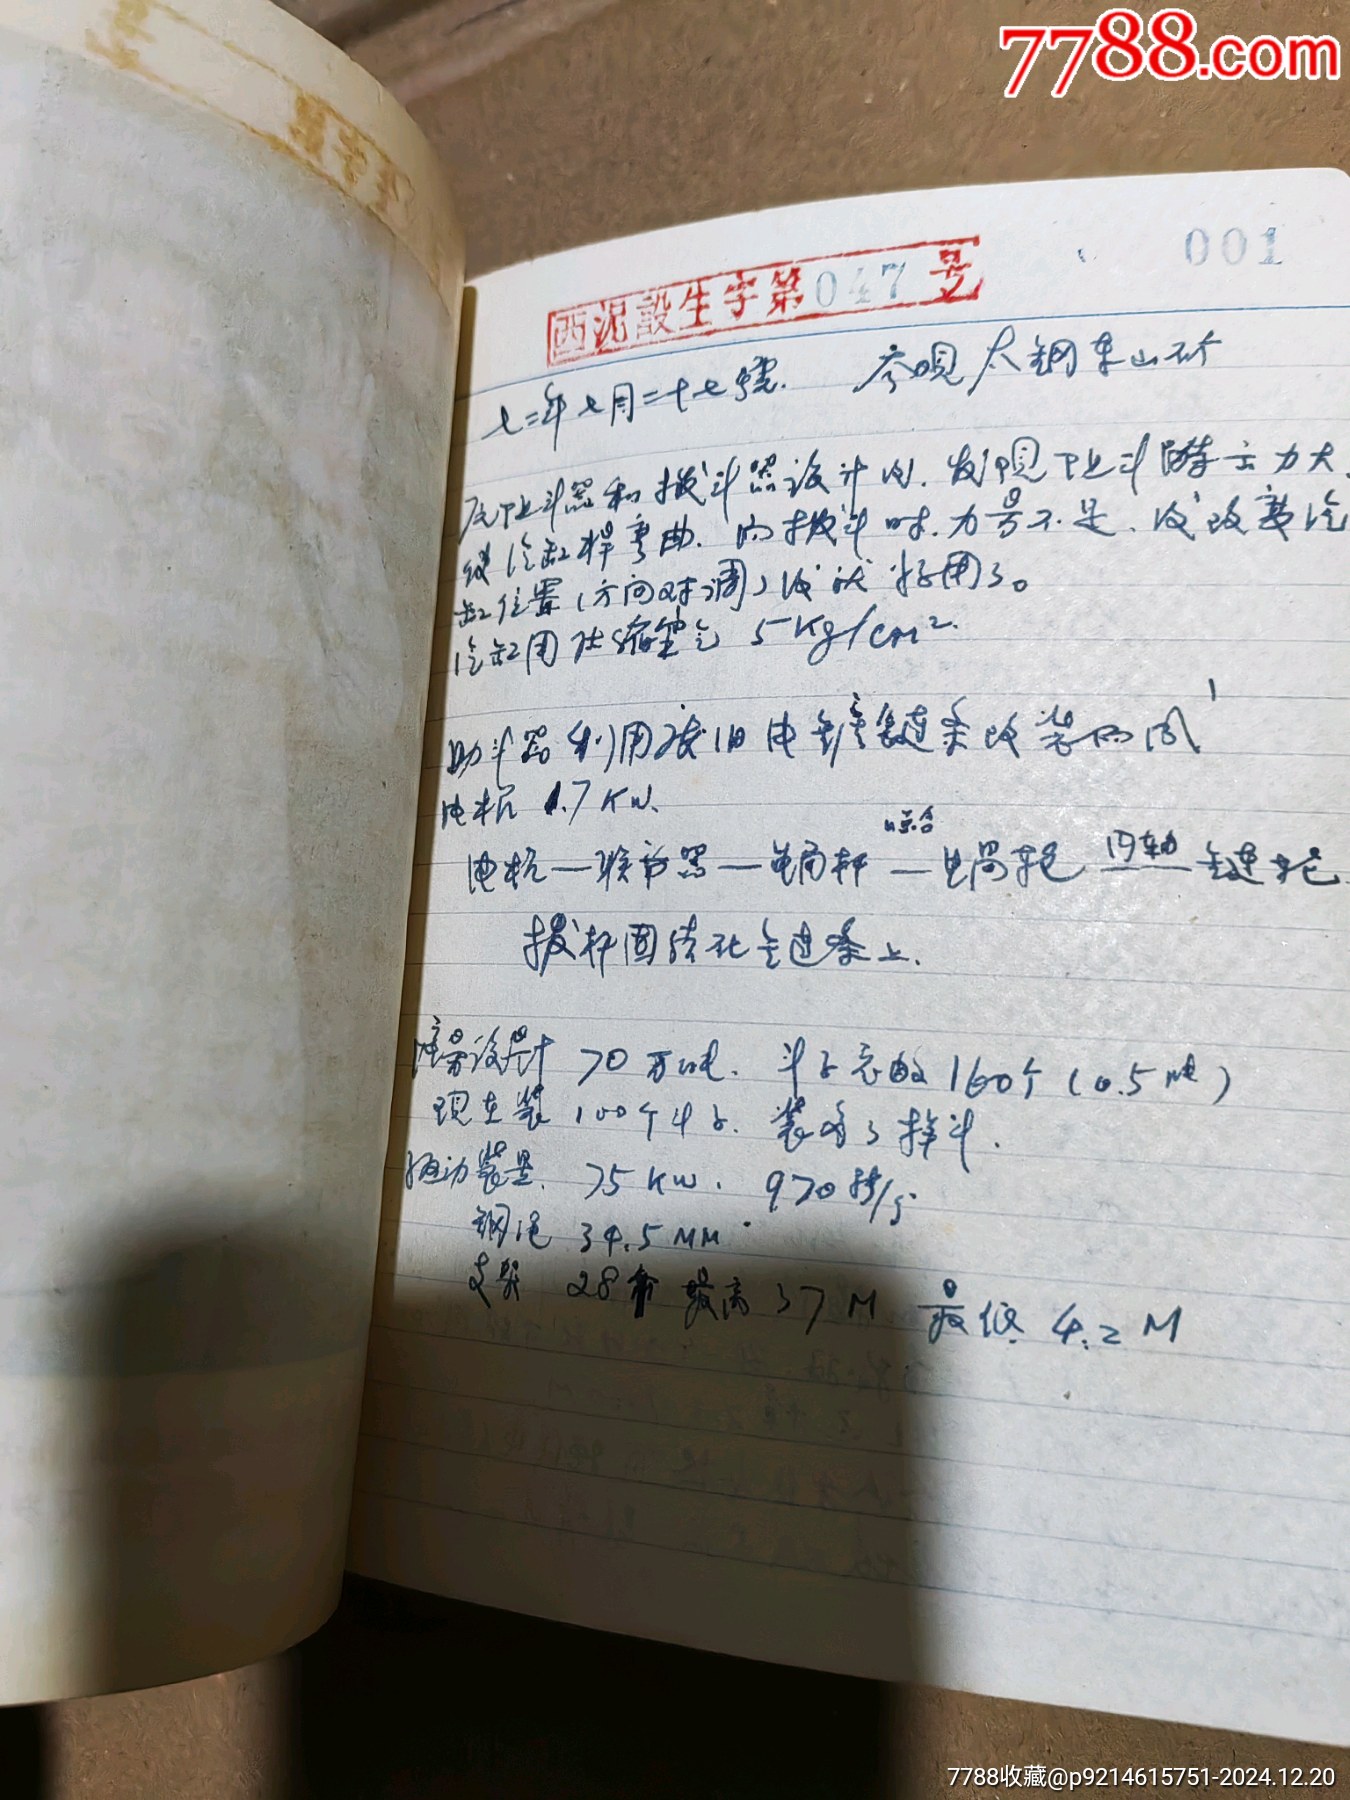 7788.com
001
西泥設生字第047号
七二年七月二十七号. 参观太钢东山矿
原阻斗器和拨斗器设计时.发现阻斗器 力大.
使汽缸杆弯曲.而拨斗时.力量不足.后改变汽
缸位置(方向对调)后就好用了。
汽缸用压缩空气 5Kg/cm².
助斗器利用废旧电 链条改装而成
电机 1.7KW.
电机—联节器—蜗杆—啮合—蜗轮 同轴 链轮.
拨杆固结在链条上.
产量设计 70万吨. 斗子总数160个(0.5吨)
现在装100个斗子. 装多了掉斗.
驱动装置. 75KW. 970转/分
钢绳 34.5MM
支架 28个 最高 37M 最低 4.2M
7788收藏@p9214615751-2024.12.20